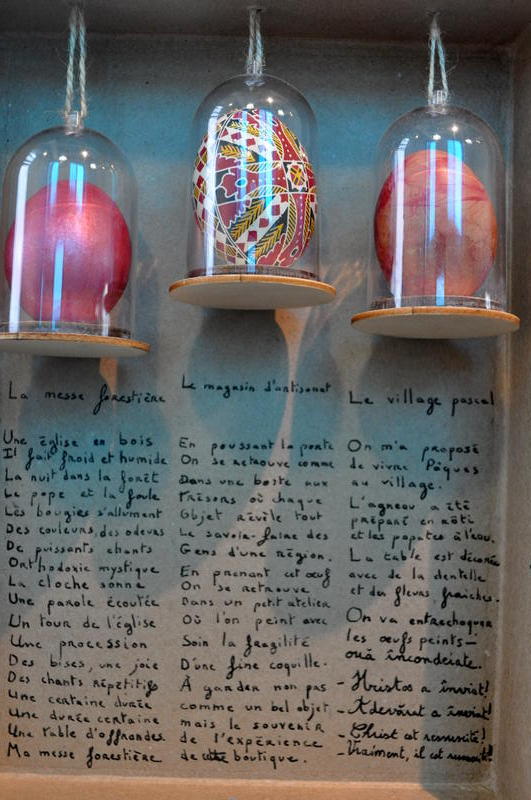 La messe forestière
Une église en bois
Il fait froid et humide
La nuit dans la forêt
Le pope et la foule
Les bougies s'allument
Des couleurs, des odeurs
De puissants chants
Orthodoxie mystique
La cloche sonne
Une parole écoutée
Un tour de l'église
Une procession
Des bises, une joie
Des chants répétitifs
Une certaine durée
Une durée certaine
Une table d'offrandes
Ma messe forestière
Le magasin d'artisanat
En poussant la porte
On se retrouve comme
Dans une boite aux
Trésors où chaque
Objet révèle tout
Le savoir-faire des
Gens d'une région.
En prenant cet œuf
On se retrouve
Dans un petit atelier
Où l'on peint avec
Soin la fragilité
D'une fine coquille.
À garder non pas
comme un bel objet
mais le souvenir
de l'expérience
de cette boutique.
Le village pascal
On m'a proposé
de vivre Pâques
au village.
L'agneau a été
préparé en rôti
et les papates à l'eau.
La table est décorée
avec de la dentelle
et des fleurs fraiches.
On va entrechoquer
les œufs peints -
ouă încondeiate.
- Hristos a înviat!
- Adevărat a înviat!
- Christ est ressuscité!
- Vraiment, il est ressuscité!